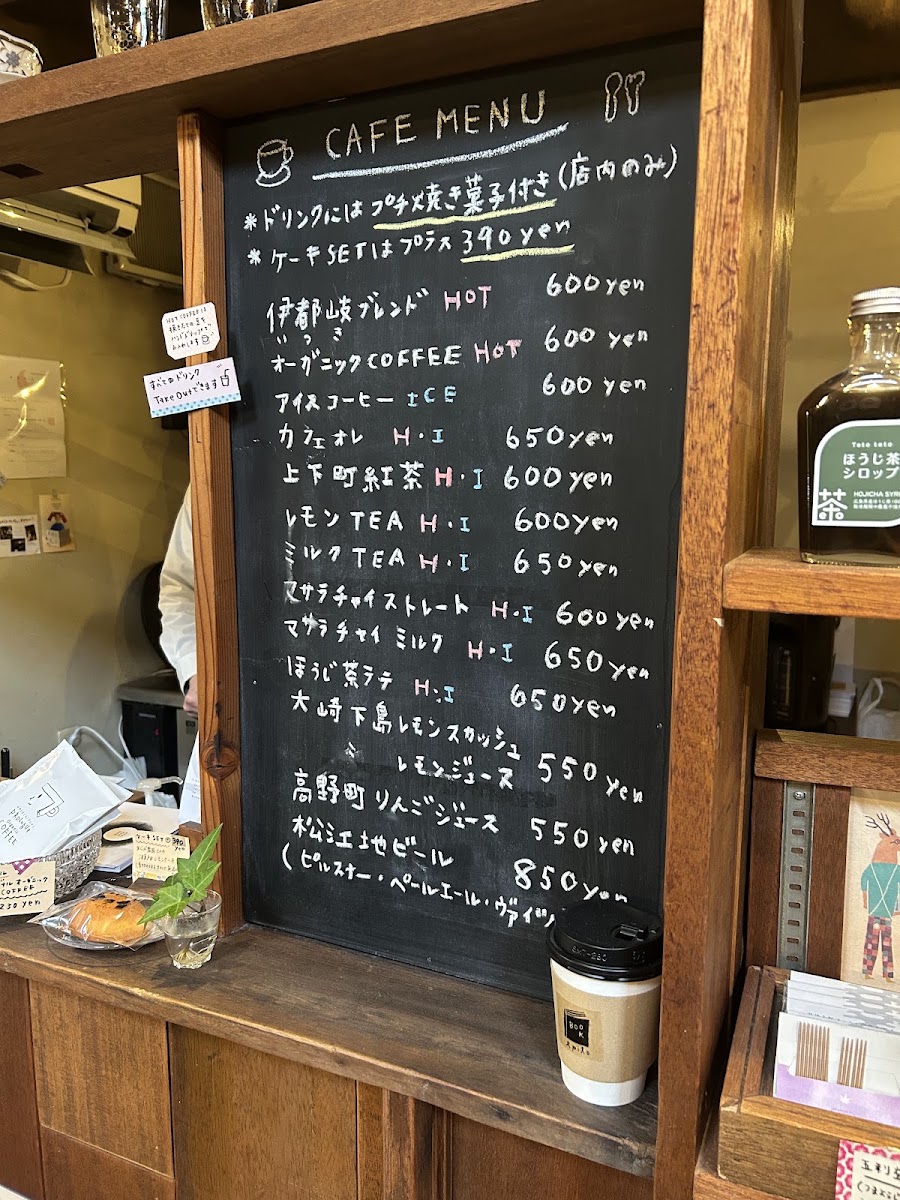 CAFE MENU
*ドリンクにはプチ焼き菓子付き(店内のみ)
*ケーキSETはプラス390yen
伊都岐ブレンド HOT 600yen
いつき
オーガニックCOFFEE HOT 600yen
アイスコーヒー ICE 600yen
カフェオレ H・I 650yen
上下町紅茶 H・I 600yen
レモンTEA H・I 600yen
ミルクTEA H・I 650yen
マサラチャイストレート H・I 600yen
マサラチャイミルク H・I 650yen
ほうじ茶ラテ H・I 650yen
大崎下島レモンスカッシュ
〃 レモンジュース 550yen
高野町りんごジュース 550yen
松江地ビール 850yen
(ピルスナー・ペールエール・ヴァイツ
HOT COFFEEは
すべてのドリンク
Take Outできます
Tete teto
ほうじ茶
シロップ
茶
HOJICHA SYRU
COFFEE
ケーキSET 390
オーガニック
COFFEE
230yen
BOOK